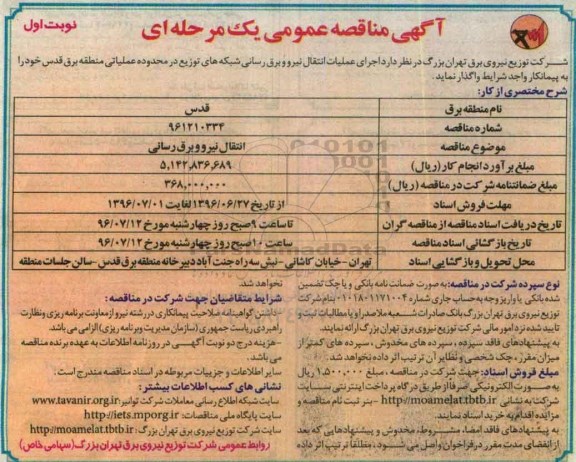 آگهی مناقصه عمومی یک مرحله ای
نوبت اول
شرکت توزیع نیروی برق تهران بزرگ در نظر دارد اجرای عملیات انتقال نیرو و برق رسانی شبکه های توزیع در محدوده عملیاتی منطقه برق قدس خود را
به پیمانکار واجد شرایط واگذار نماید.
شرح مختصری از کار:
نام منطقه برق قدس
شماره مناقصه ۹۶۱۲۱۰۳۳۴
موضوع مناقصه انتقال نیرو و برق رسانی
مبلغ برآورد انجام کار (ریال) ۵,۱۴۲,۸۳۶,۶۸۹
مبلغ ضمانتنامه شرکت در مناقصه (ریال) ۳۶۸,۰۰۰,۰۰۰
مهلت فروش اسناد از تاریخ ۱۳۹۶/۰۶/۲۷ لغایت ۱۳۹۶/۰۷/۰۱
تاریخ دریافت اسناد مناقصه از مناقصه گران تا ساعت ۹ صبح روز چهارشنبه مورخ ۹۶/۰۷/۱۲
تاریخ بازگشائی اسناد مناقصه ساعت ۱۰ صبح روز چهارشنبه مورخ ۹۶/۰۷/۱۲
محل تحویل و بازگشایی اسناد تهران - خیابان کاشانی - نبش سه راه جنت آباد دبیرخانه منطقه برق قدس - سالن جلسات منطقه
نوع سپرده شرکت در مناقصه: به صورت ضمانت نامه بانکی و یا چک تضمین
شده بانکی یا واریز وجه به حساب جاری شماره ۰۱۰۱۸۰۱۱۷۱۰۰۴ بنام شرکت
توزیع نیروی برق تهران بزرگ بانک صادرات شعبه ملاصدرا و یا مطالبات ثبت و
تایید شده نزد امور مالی شرکت توزیع نیروی برق تهران بزرگ ارائه نمایند.
به پیشنهادهای فاقد سپرده ، سپرده های مخدوش ، سپرده های کمتر از
میزان مقرر، چک شخصی و نظایر آن ترتیب اثر داده نخواهد شد.
مبلغ فروش اسناد: جهت شرکت در مناقصه ، مبلغ ۱,۵۰۰,۰۰۰ ریال
به صورت الکترونیکی صرفا از طریق درگاه پرداخت اینترنتی سایت
شرکت به نشانی http://moamelat.tbtb.ir - بنر ثبت نام مناقصه و
مزایده اقدام به خرید اسناد نمایند.
به پیشنهادهای فاقد امضاء، مشروط، مخدوش و پیشنهادهایی که بعد
از انقضای مدت مقرر در فراخوان واصل می شود ، مطلقا ترتیب اثر داده
نخواهد شد.
شرایط متقاضیان جهت شرکت در مناقصه :
-داشتن گواهینامه صلاحیت پیمانکاری در رشته نیرو از معاونت برنامه ریزی و نظارت
راهبردی ریاست جمهوری (سازمان مدیریت و برنامه ریزی) الزامی می باشد.
-هزینه درج دو نوبت آگهی در روزنامه اطلاعات به عهده برنده مناقصه
می باشد.
سایر اطلاعات و جزییات مربوطه در اسناد مناقصه مندرج است.
نشانی های کسب اطلاعات بیشتر :
سایت شبکه اطلاع رسانی معاملات شرکت توانیر: www.tavanir.org.ir
سایت پایگاه ملی مناقصات: http://iets.mporg.ir
سایت شرکت توزیع نیروی برق تهران بزرگ : http://moamelat.tbtb.ir
روابط عمومی شرکت توزیع نیروی برق تهران بزرگ (سهامی خاص)